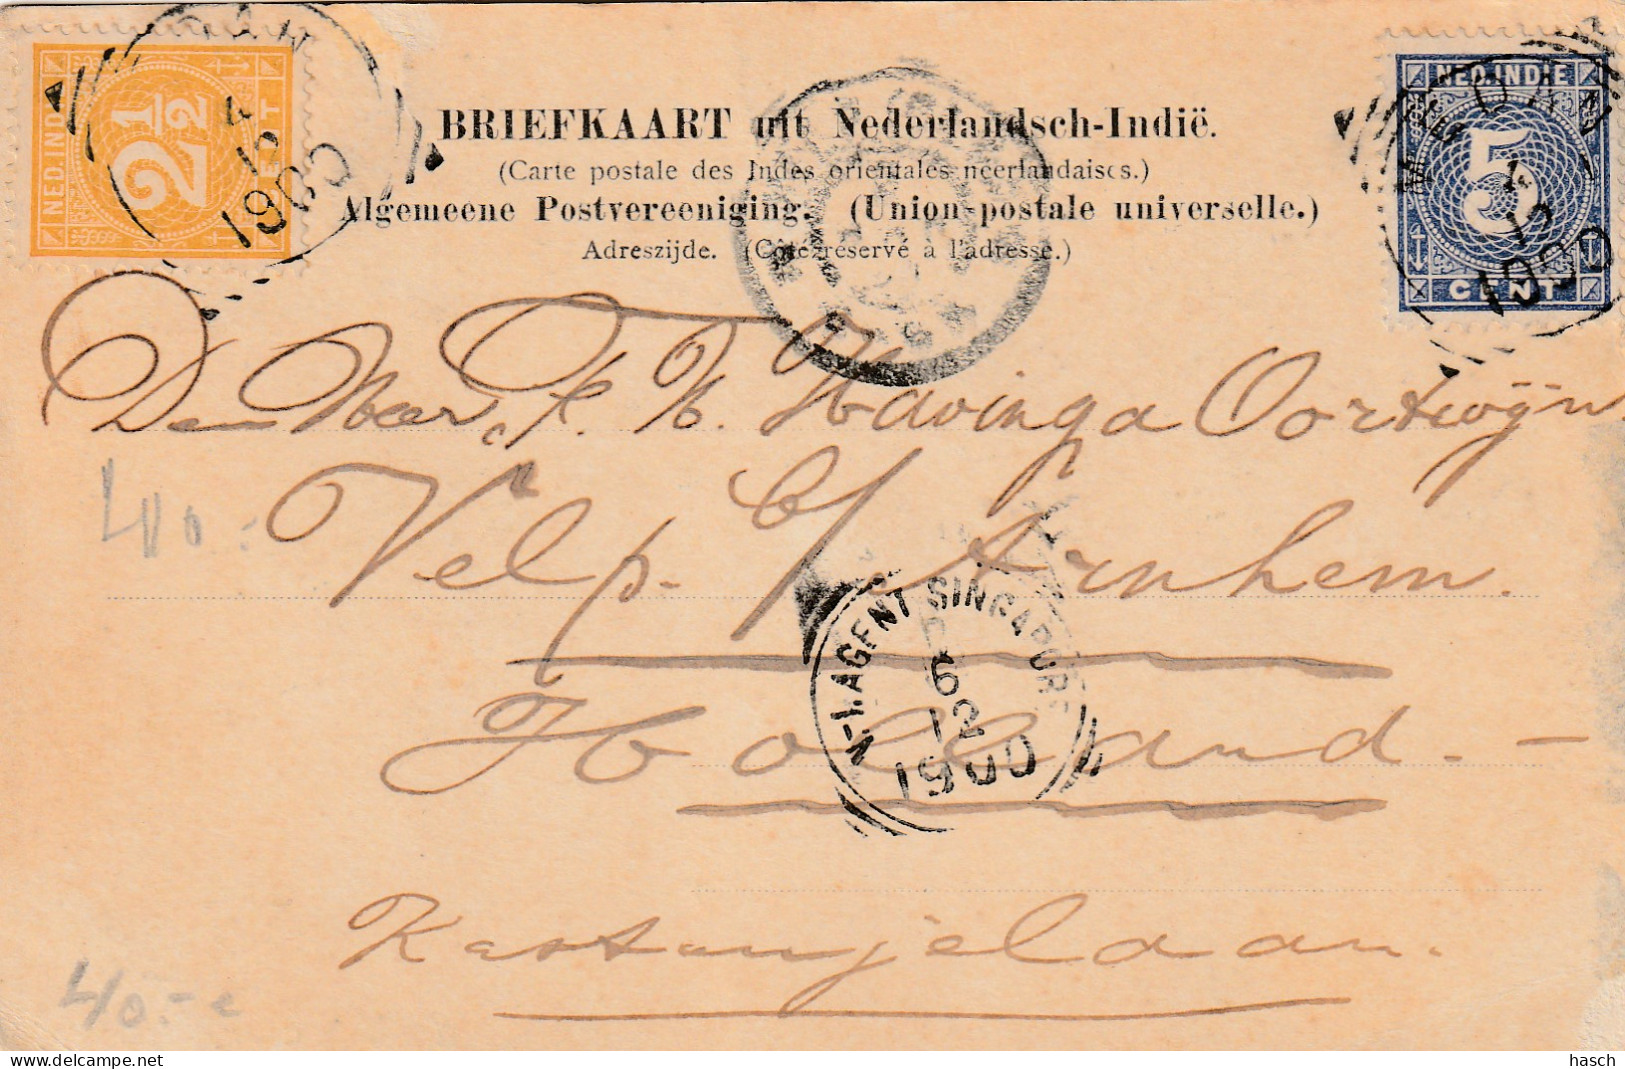 NED.INDIE
2½
CENT
1900
BRIEFKAART uit Nederlandsch-Indië.
(Carte postale des Indes orientales néerlandaises.)
Algemeene Postvereeniging. (Union postale universelle.)
Adreszijde. (Côté réservé à l'adresse.)
NED.INDIE
5
CENT
4
12
1900
Den Heer, F. W. Havinga Oortwijn
Velp. b/ Arnhem.
40.-
N-I.AGENT SINGAPORE
6
12
1900
Holland.-
Kastanjelaan.
40.-c
hasch